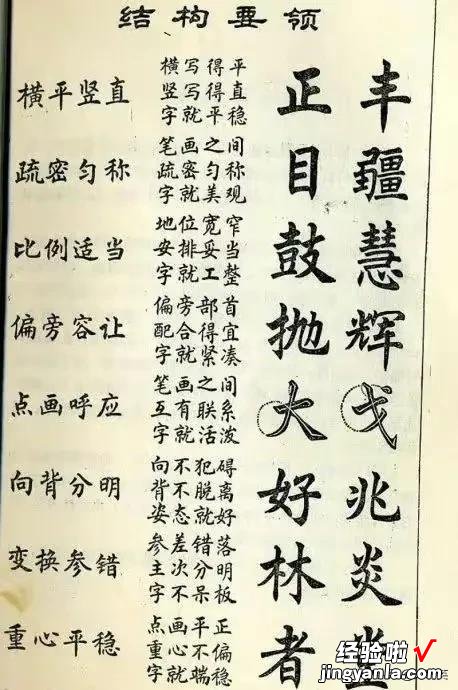 结构要领
横平竖直 横写得平 正 丰
竖写得直
字就平稳
疏密匀称 笔画之间 目 疆
疏密匀称
字就美观
比例适当 地位宽窄 鼓 慧
安排妥当
字就工整
偏旁容让 偏旁部首 抛 辉
配合得宜
字就紧凑
点画呼应 笔画之间 火 戈
互有联系
字就活泼
向背分明 向不犯碍 好 兆
背不脱离
姿态就好
变换参错 参差错落 林 炎
主次分明
字不呆板
重心平稳 点画平正 者
重心不偏
字就端稳
经验啦√
jingyanla.com